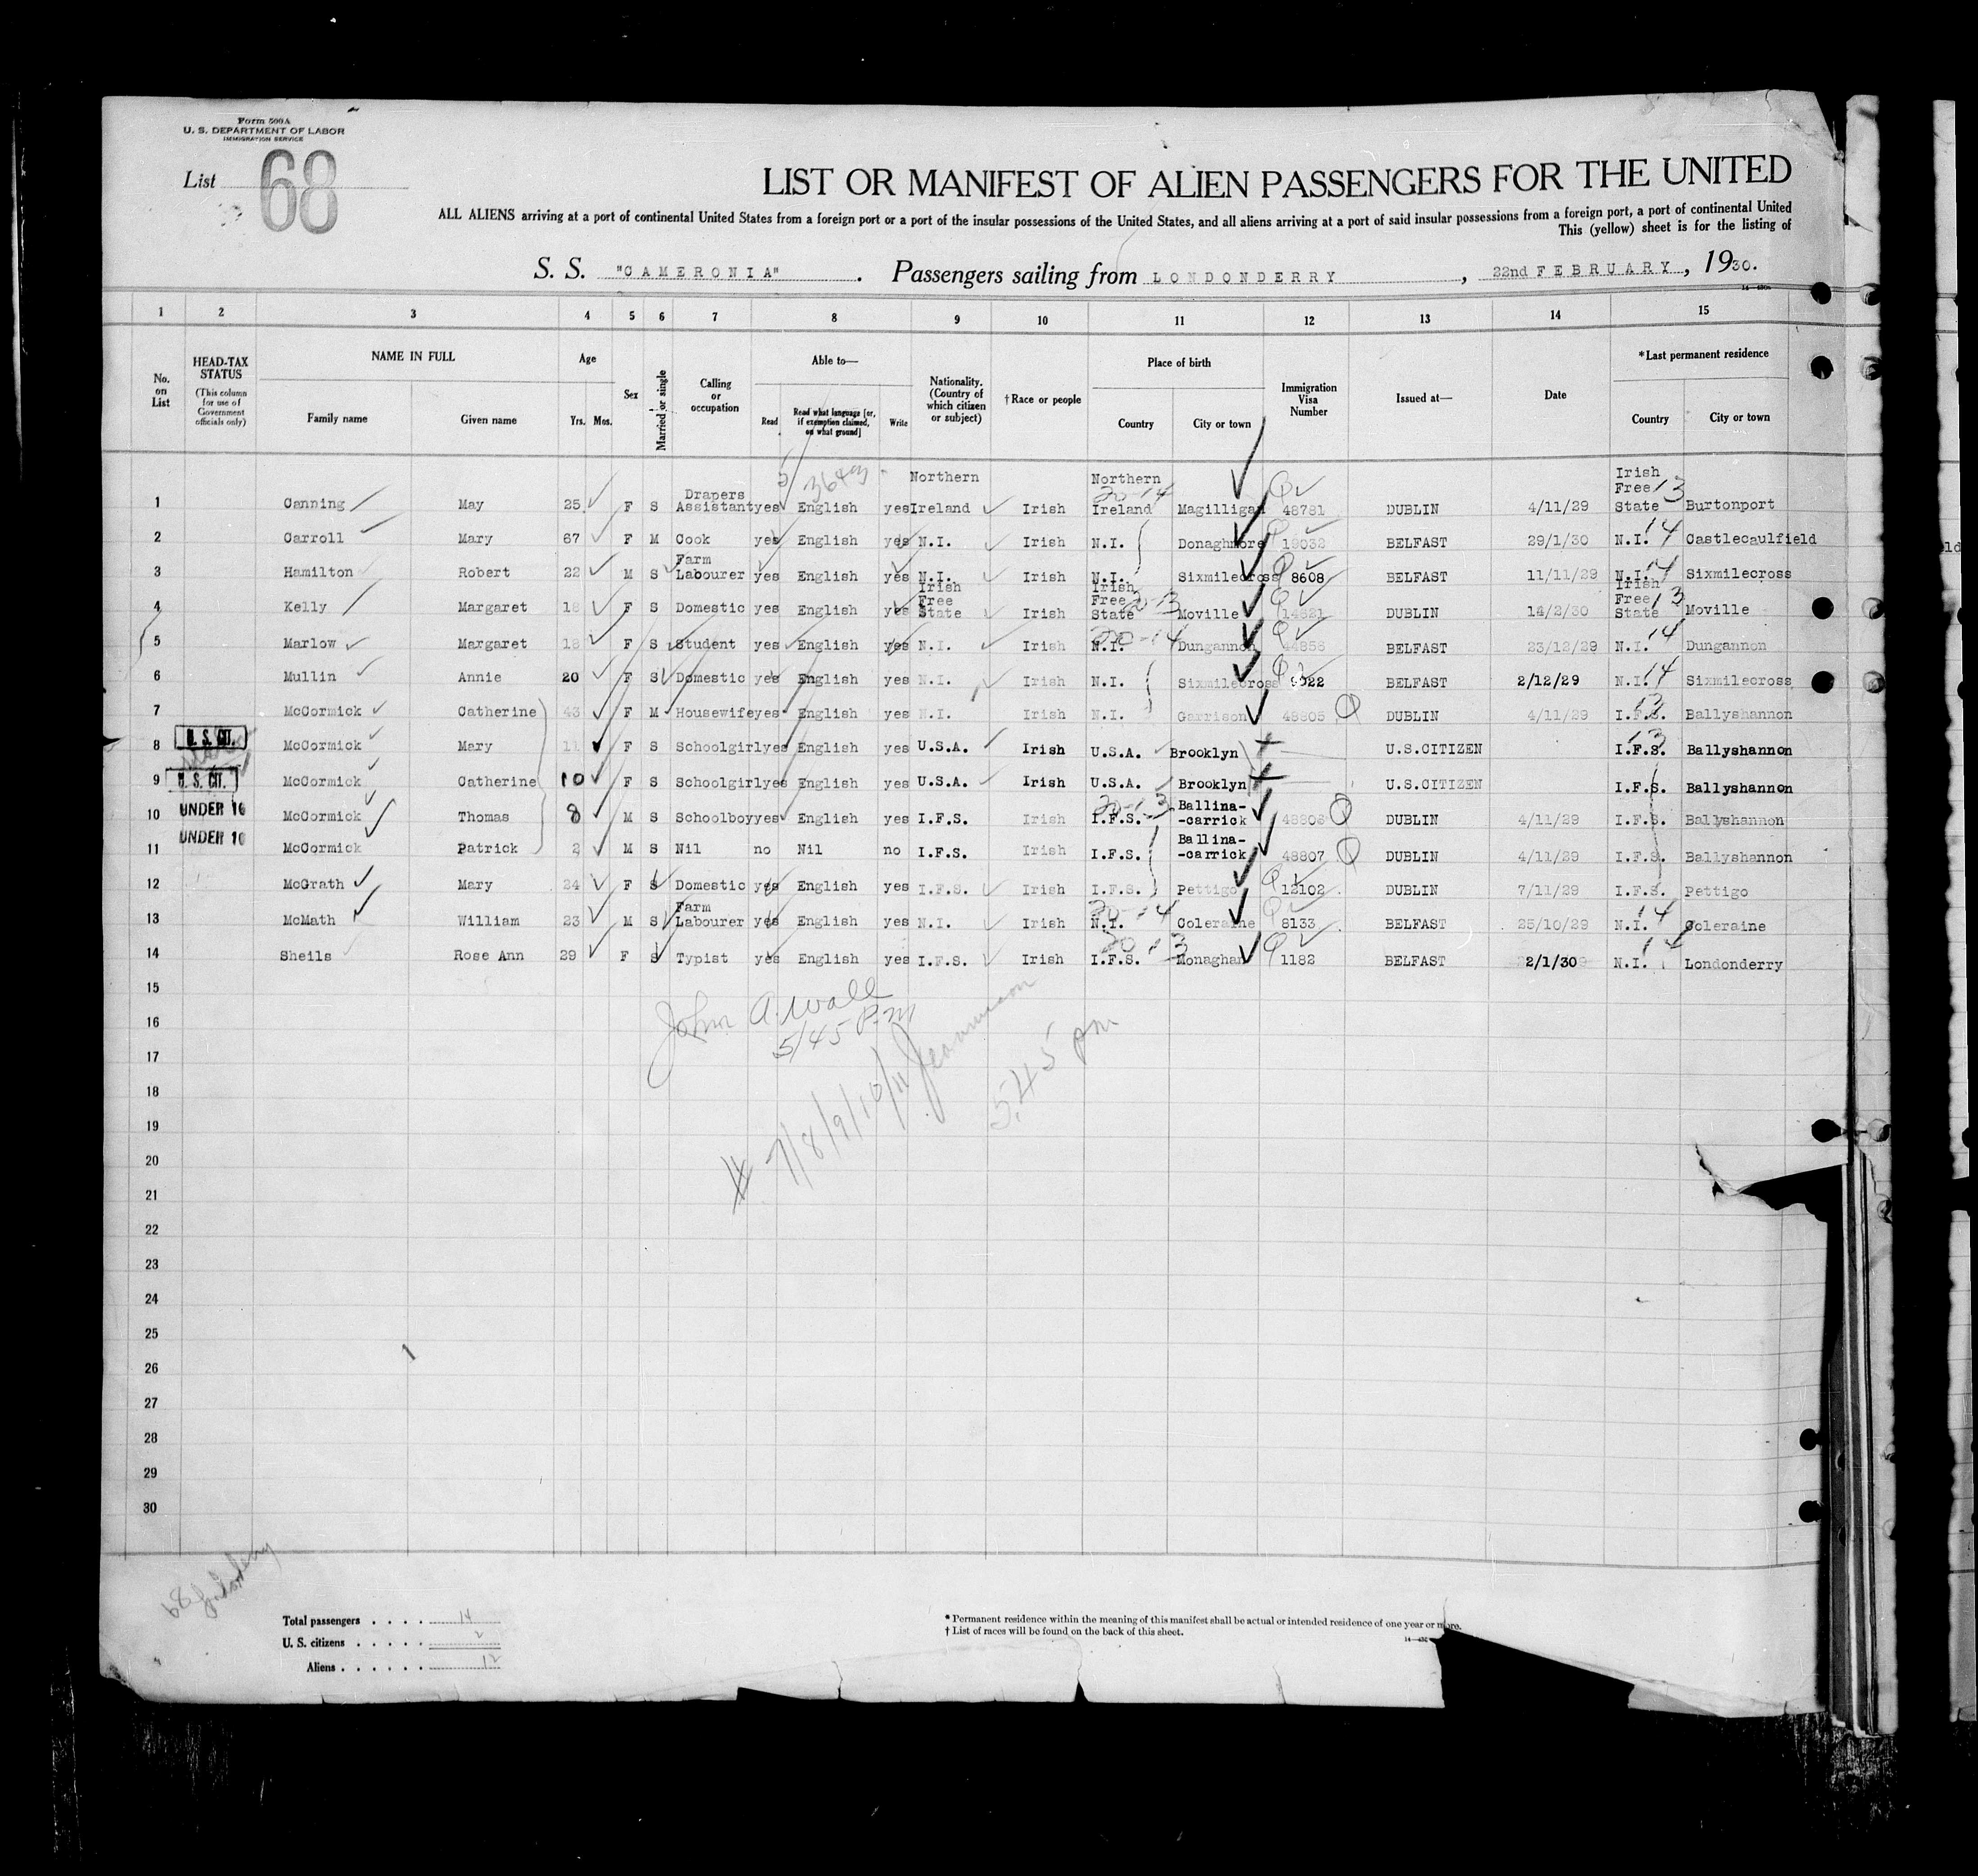 Form 500A
U. S. DEPARTMENT OF LABOR
IMMIGRATION SERVICE
List 68
LIST OR MANIFEST OF ALIEN PASSENGERS FOR THE UNITED
ALL ALIENS arriving at a port of continental United States from a foreign port or a port of the insular possessions of the United States, and all aliens arriving at a port of said insular possessions from a foreign port, a port of continental United
This (yellow) sheet is for the listing of
S. S. "CAMERONIA". Passengers sailing from LONDONDERRY, 22nd FEBRUARY, 1930.
1 2 3 4 5 6 7 8 9 10 11 12 13 14 15
No. on List
HEAD-TAX STATUS (This column for use of Government officials only)
NAME IN FULL Family name Given name
Age Yrs. Mos.
Sex
Married or single
Calling or occupation
Able to— Read Read what language [or, if exemption claimed, on what ground] Write
Nationality. (Country of which citizen or subject)
†Race or people
Place of birth Country City or town
Immigration Visa Number
Issued at—
Date
*Last permanent residence Country City or town
1 Canning May 25 F S Drapers Assistant yes English yes Northern Ireland Irish Northern Ireland 20-14 Magilligan 48781 DUBLIN 4/11/29 Irish Free State 13 Burtonport
2 Carroll Mary 67 F M Cook yes English yes N.I. Irish N.I. Donaghmore 19032 BELFAST 29/1/30 N.I. 14 Castlecaulfield
3 Hamilton Robert 22 M S Farm Labourer yes English yes N.I. Irish N.I. Sixmilecross 8608 BELFAST 11/11/29 N.I. 14 Sixmilecross
4 Kelly Margaret 18 F S Domestic yes English yes Irish Free State Irish Irish Free State 20-13 Moville 14821 DUBLIN 14/2/30 Irish Free State 13 Moville
5 Marlow Margaret 18 F S Student yes English yes N.I. Irish N.I. 20-14 Dungannon 44856 BELFAST 23/12/29 N.I. 14 Dungannon
6 Mullin Annie 20 F S Domestic yes English yes N.I. Irish N.I. Sixmilecross 9922 BELFAST 2/12/29 N.I. 14 Sixmilecross
7 McCormick Catherine 43 F M Housewife yes English yes N.I. Irish N.I. Garrison 48805 DUBLIN 4/11/29 I.F.S. 13 Ballyshannon
8 U. S. CIT. McCormick Mary 11 F S Schoolgirl yes English yes U.S.A. Irish U.S.A. Brooklyn U.S.CITIZEN I.F.S. 13 Ballyshannon
9 U. S. CIT. McCormick Catherine 10 F S Schoolgirl yes English yes U.S.A. Irish U.S.A. Brooklyn U.S.CITIZEN I.F.S. Ballyshannon
10 UNDER 16 McCormick Thomas 8 M S Schoolboy yes English yes I.F.S. Irish I.F.S. 20-13 Ballina-carrick 48806 DUBLIN 4/11/29 I.F.S. Ballyshannon
11 UNDER 16 McCormick Patrick 2 M S Nil no Nil no I.F.S. Irish I.F.S. Ballina-carrick 48807 DUBLIN 4/11/29 I.F.S. Ballyshannon
12 McGrath Mary 24 F S Domestic yes English yes I.F.S. Irish I.F.S. Pettigo 12102 DUBLIN 7/11/29 I.F.S. Pettigo
13 McMath William 23 M S Farm Labourer yes English yes N.I. Irish N.I. 20-14 Coleraine 8133 BELFAST 25/10/29 N.I. 14 Coleraine
14 Sheils Rose Ann 29 F S Typist yes English yes I.F.S. Irish I.F.S. 20-13 Monaghan 1182 BELFAST 2/1/30 N.I. 14 Londonderry
15
16
17
18
19
20
21
22
23
24
25
26
27
28
29
30
John A. Wall
5/45 P.M
7/8/9/10/11
5.45 PM
68
Total passengers . . . . 14
U. S. citizens . . . . . 2
Aliens . . . . . . 12
* Permanent residence within the meaning of this manifest shall be actual or intended residence of one year or more.
† List of races will be found on the back of this sheet.